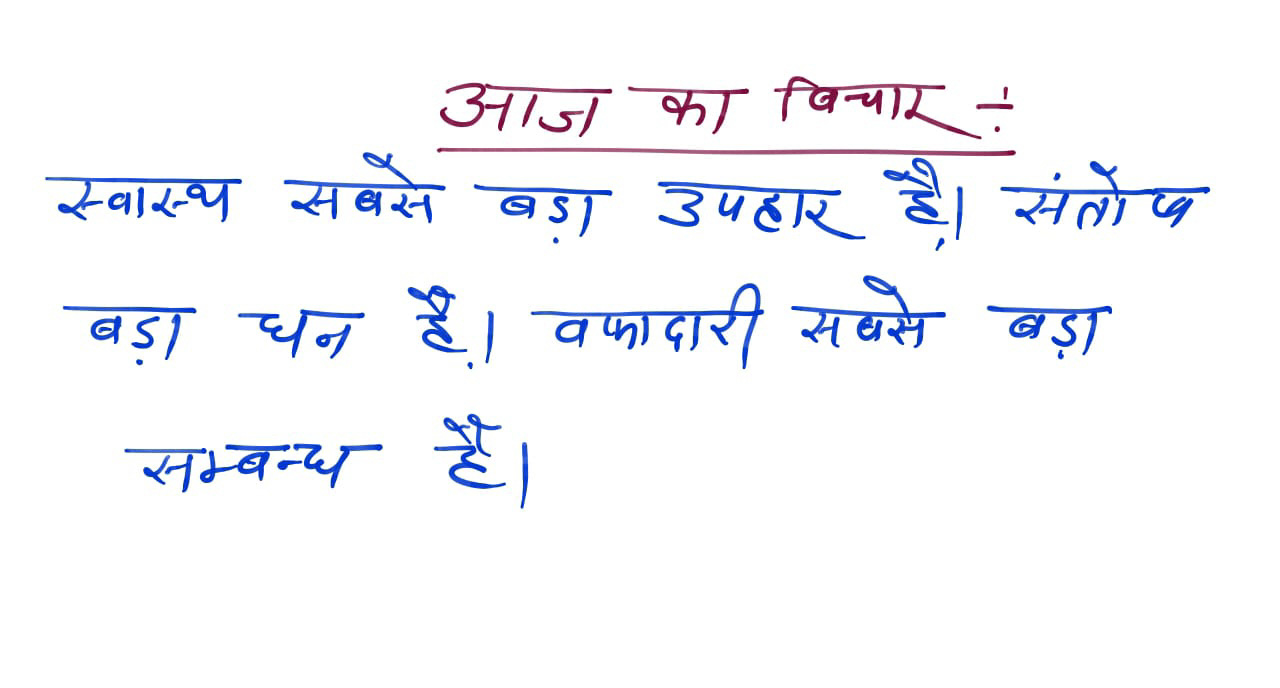 आज का विचार ÷
स्वास्थ सबसे बड़ा उपहार है। संतोष
बड़ा धन है। वफादारी सबसे बड़ा
सम्बन्ध है।